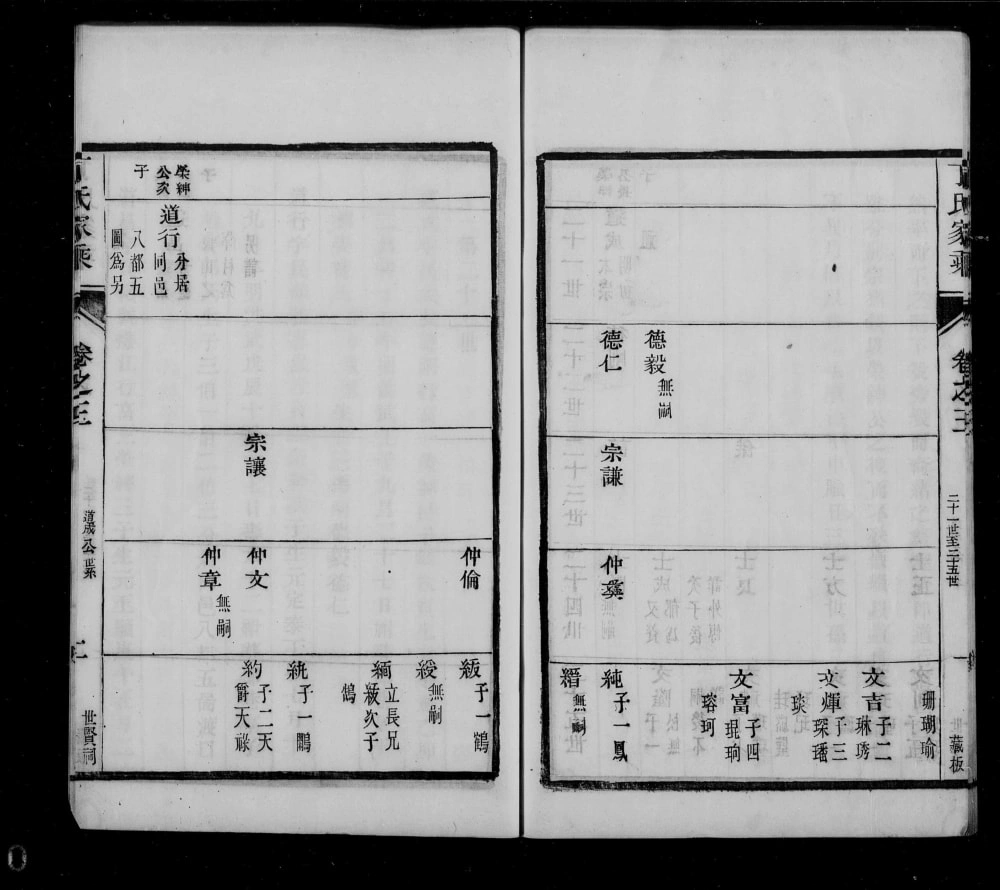 氏家乘
卷之三
二十一世至二五世
世藏板
珊瑚瑜
文吉子二
琳琇
文煇子三
琛璠
琰
德毅無嗣
文富子四
琨珦
珂
瑢
德仁
宗謙
仲彝
純子一鳳
縉無嗣
仲倫
紱子一鶴
綬無嗣
緬立長兄
紱次子
鶴
宗讓
仲文
統子一鵬
仲章無嗣
約子二天
爵天祿
榮紳
公次
子
道行分居
同邑
八都五
圖為另
氏家乘
卷之三
道成公系
世賢祠